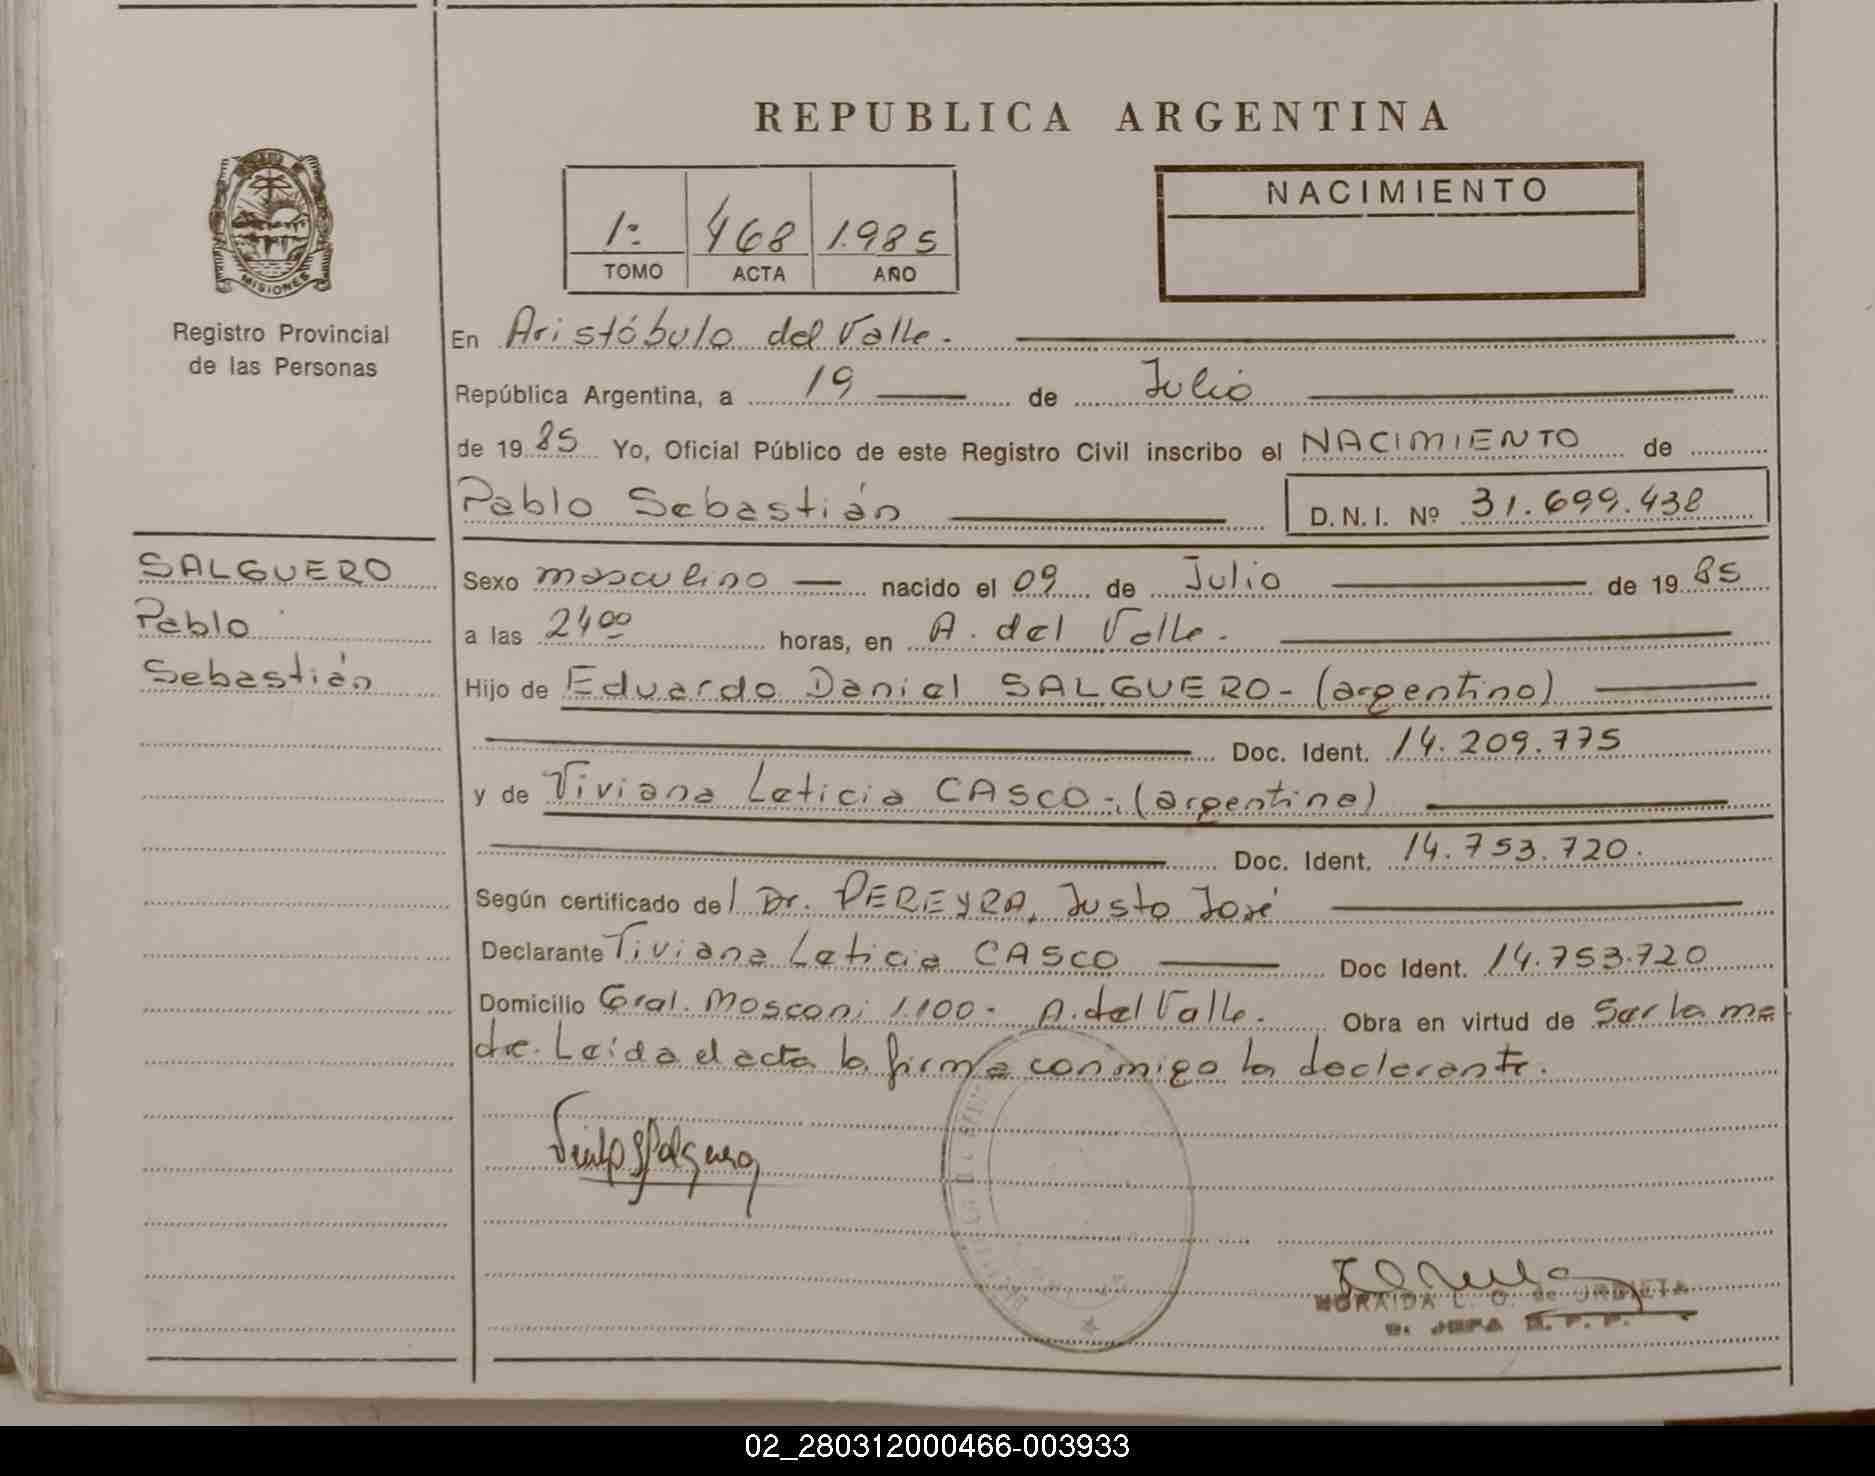 REPUBLICA ARGENTINA
NACIMIENTO
1º 468 1.985
TOMO ACTA AÑO
MISIONES
Registro Provincial
de las Personas
SALGUERO
Pablo
Sebastián
En Aristóbulo del Valle.
República Argentina, a 19 de Julio
de 19 85 Yo, Oficial Público de este Registro Civil inscribo el NACIMIENTO de
Pablo Sebastián D.N.I. Nº 31.699.438
Sexo masculino nacido el 09 de Julio de 19 85
a las 24 00 horas, en A. del Valle.
Hijo de Eduardo Daniel SALGUERO - (argentino)
Doc. Ident. 14.209.775
y de Viviana Leticia CASCO -. (argentina)
Doc. Ident. 14.753.720.
Según certificado del Dr. PEREYRA, Justo José
Declarante Viviana Leticia CASCO Doc Ident. 14.753.720
Domicilio Gral. Mosconi 1.100 - A. del Valle. Obra en virtud de Ser la ma
dre. Leída el acta la firma conmigo la declarante.
L. O. de URBIETA
JEFA
02_280312000466-003933